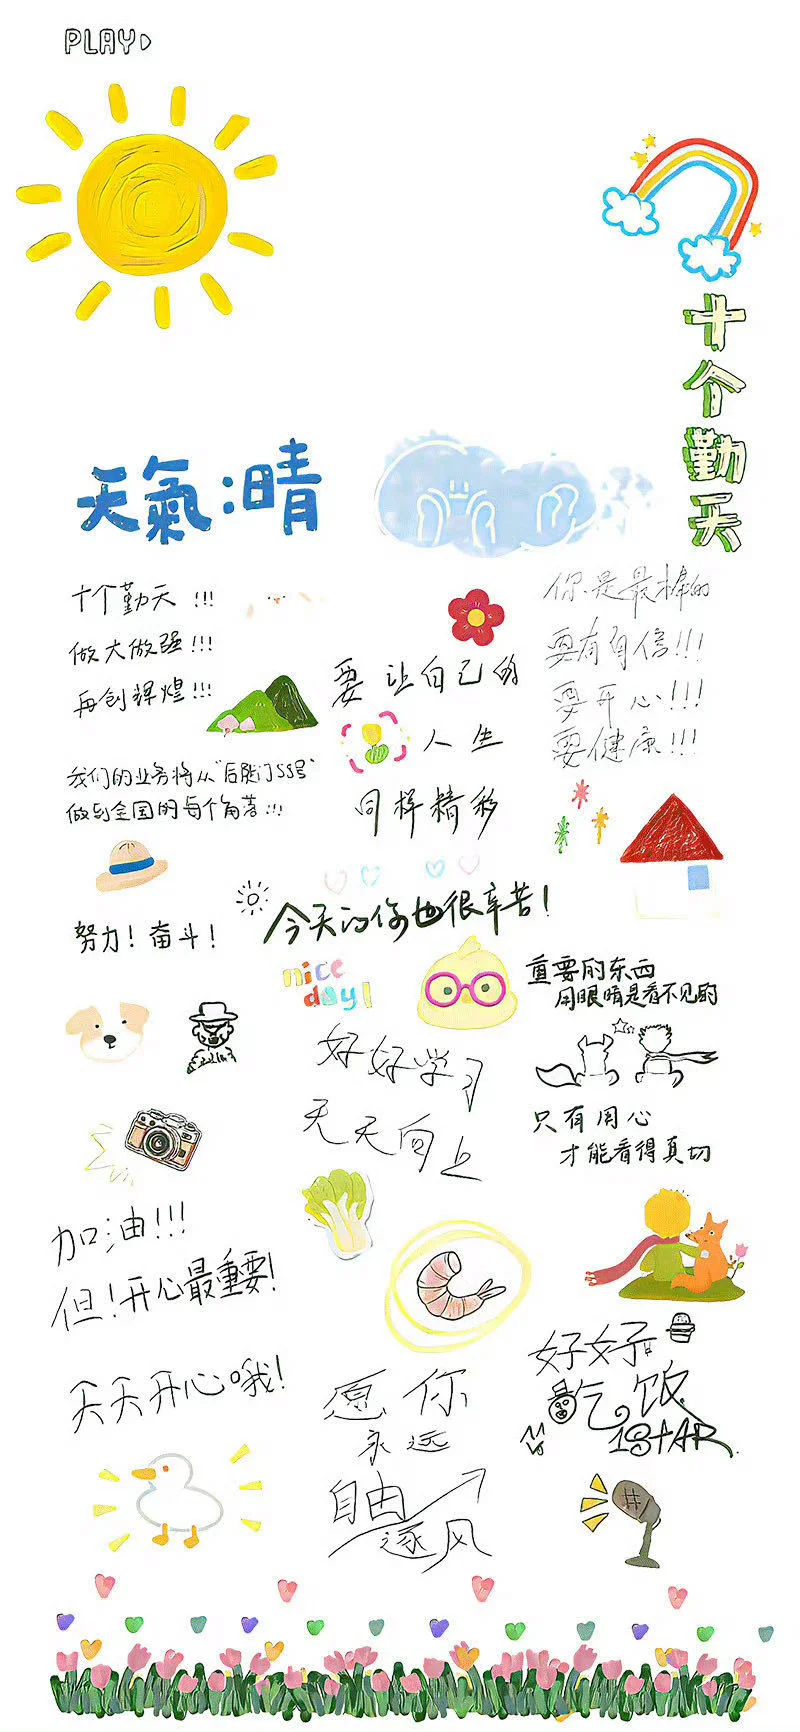 PLAY
十个勤天
天氣:晴
十个勤天!!!
做大做强!!!
再创辉煌!!!
我们的业务将从“后陡门58号”
做到全国的每个角落!!!
努力!奋斗!
要让自己的
人生
同样精彩
你是最棒的
要有自信!!!
要开心!!!
要健康!!!
今天的你也很辛苦!
nice
day!
重要的东西
用眼睛是看不见的
只有用心
才能看得真切
好好学习
天天向上
加油!!!
但!开心最重要!
天天开心哦!
愿你
永远
自由
逐风
好好
吃饭
1StAR